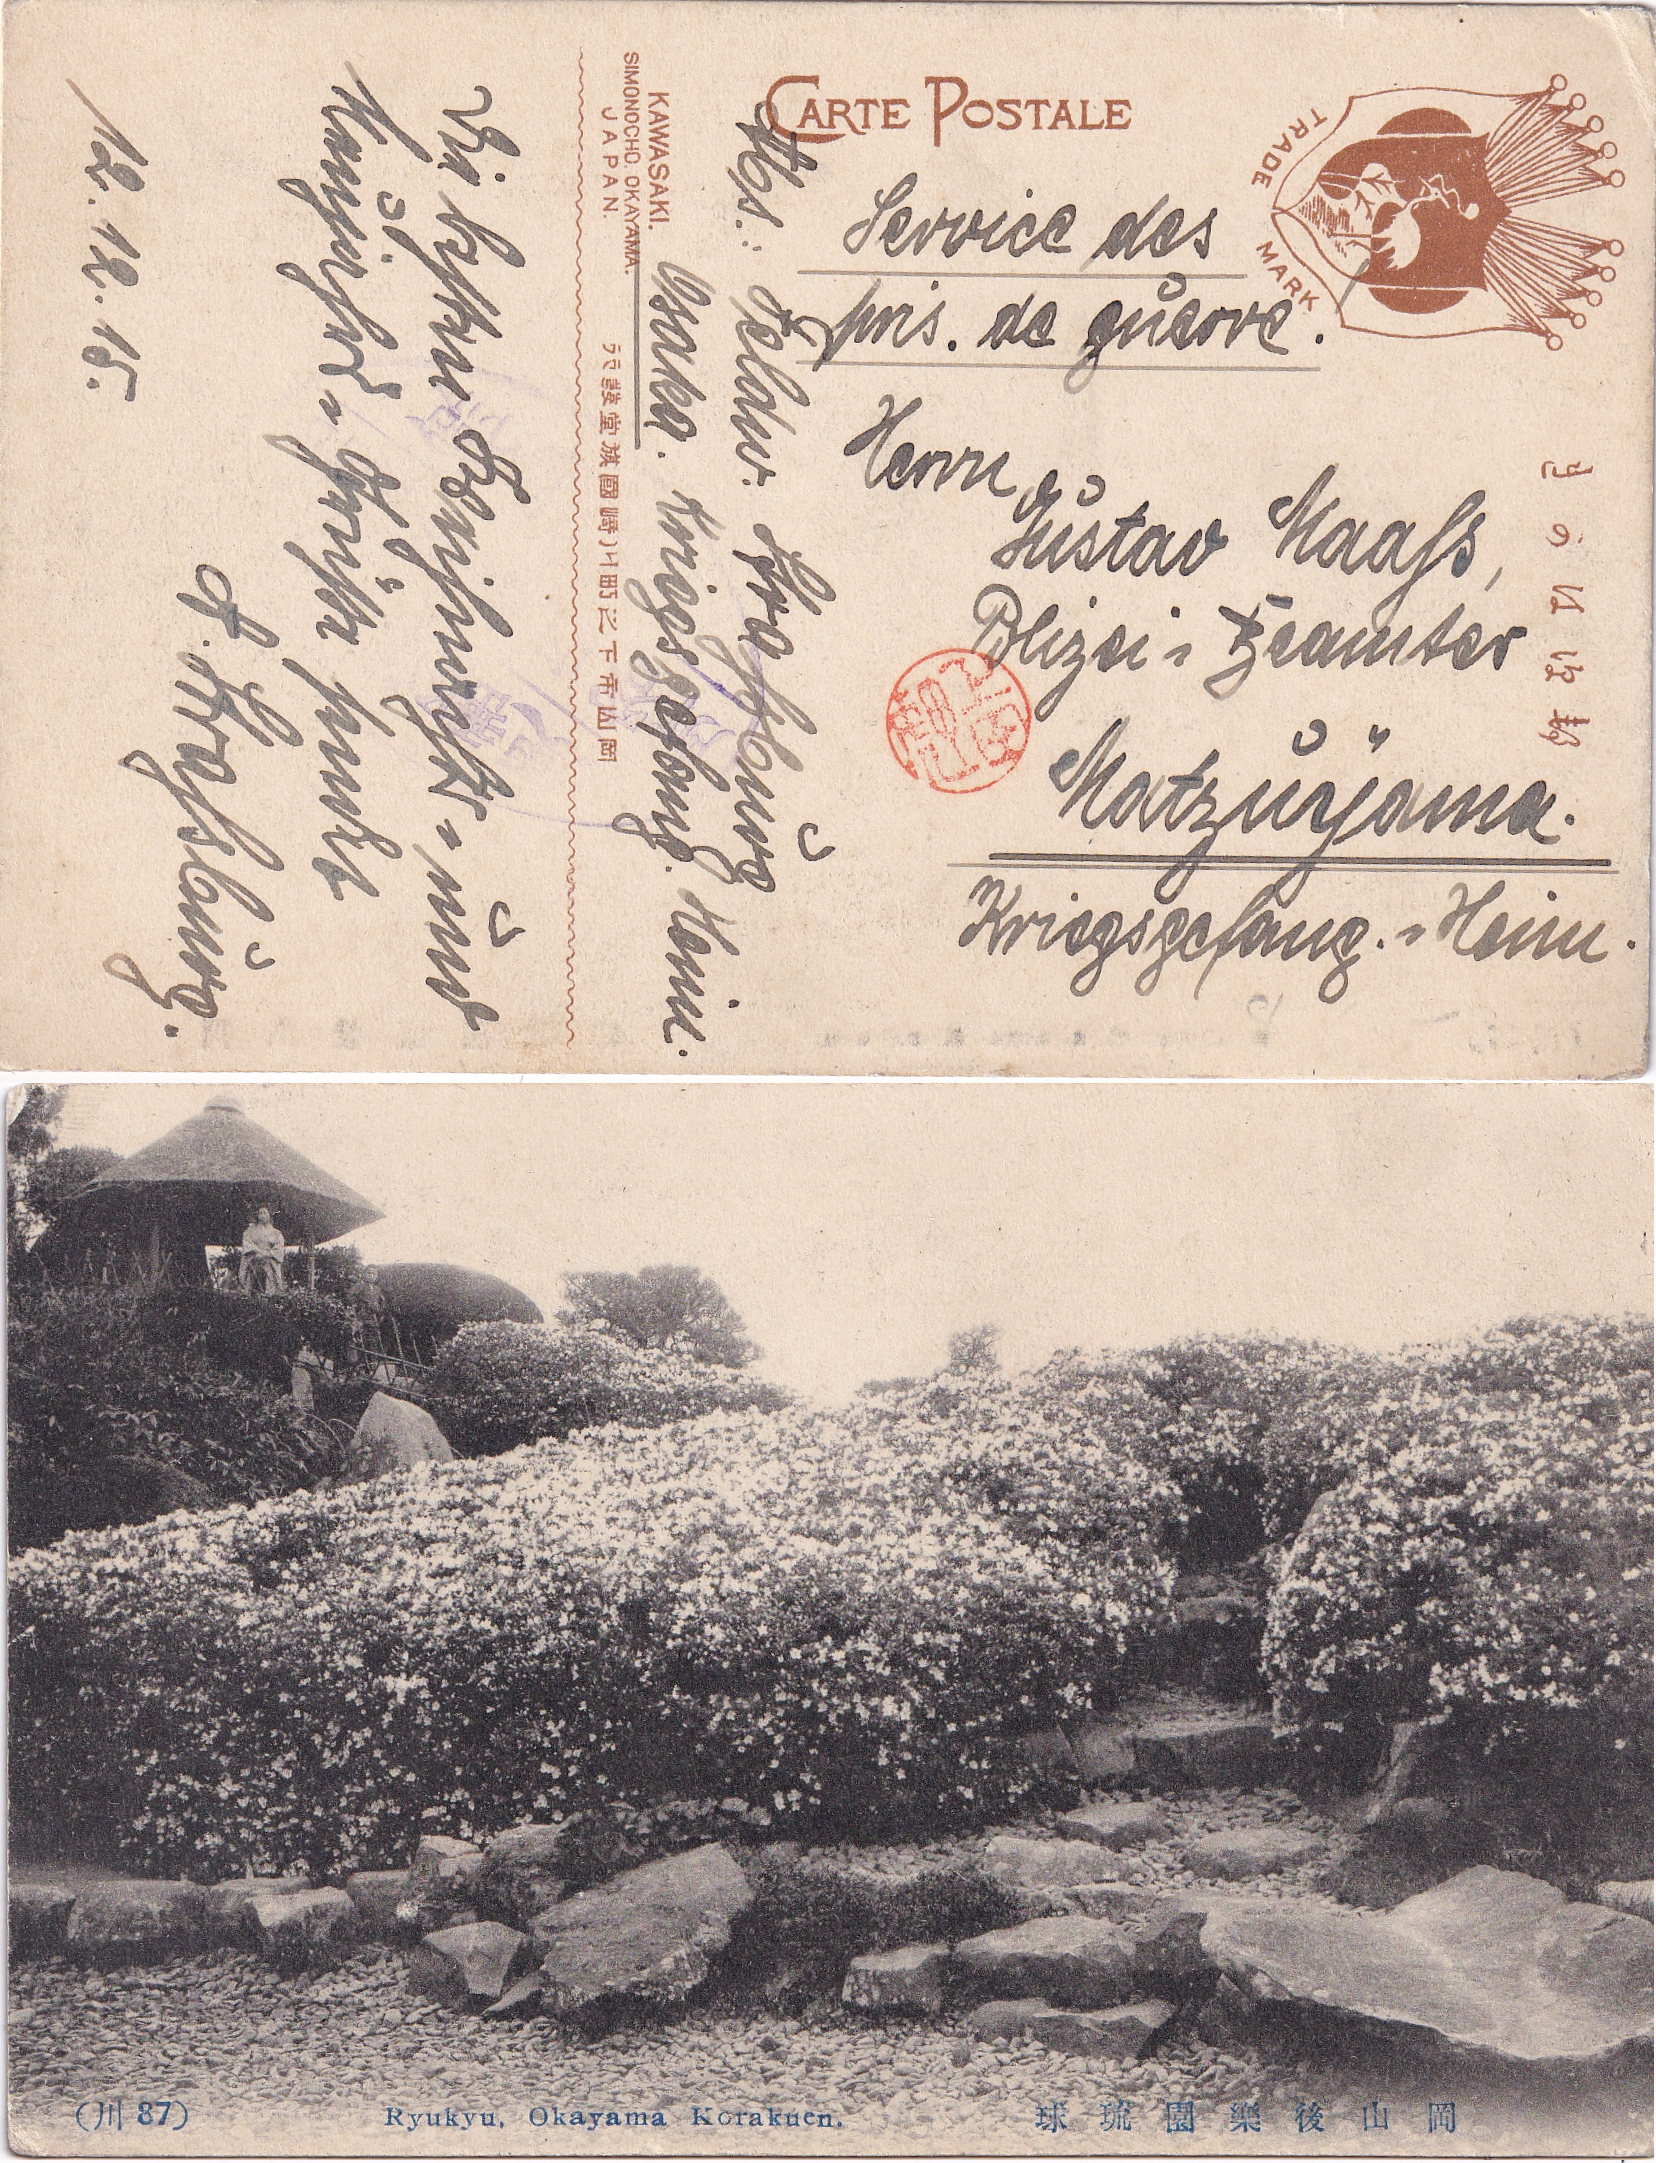 CARTE POSTALE
TRADE MARK
Service des
pris. de guerre.
Herrn
Gustav Maaß,
Polizei-Beamter
Matzuyama.
Kriegsgefang.-Heim.
Abs.: Feldw. Straßburg
Osaka. Kriegsgefang. Heim.
KAWASAKI.
SIMONOCHO. OKAYAMA.
JAPAN.
岡山市下之町川﨑國旗堂發行
Die besten Weihnachts- und
Neujahrs-Grüße sendet
A. Straßburg.
12.12.15.
(川 87)
Ryukyu, Okayama Korakuen.
岡山後樂園琉球